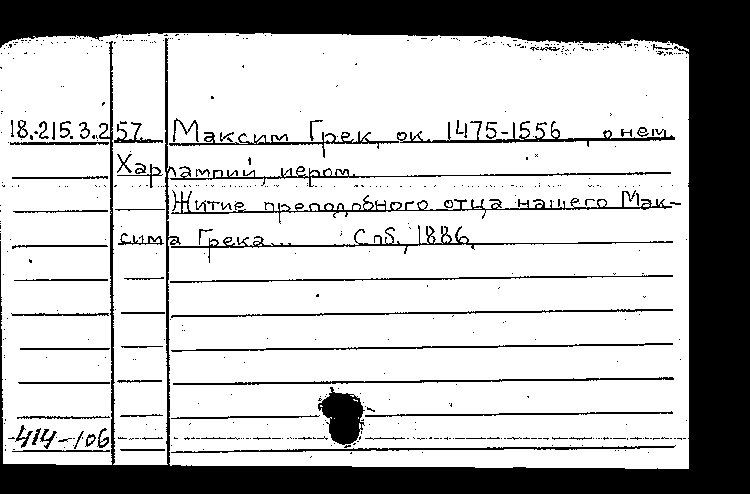 18.215.3.257 Максим Грек, ок. 1475-1556, о нем.
Харлампий, иером.
Житие преподобного отца нашего Мак-
сима Грека... Спб., 1886.
414-106